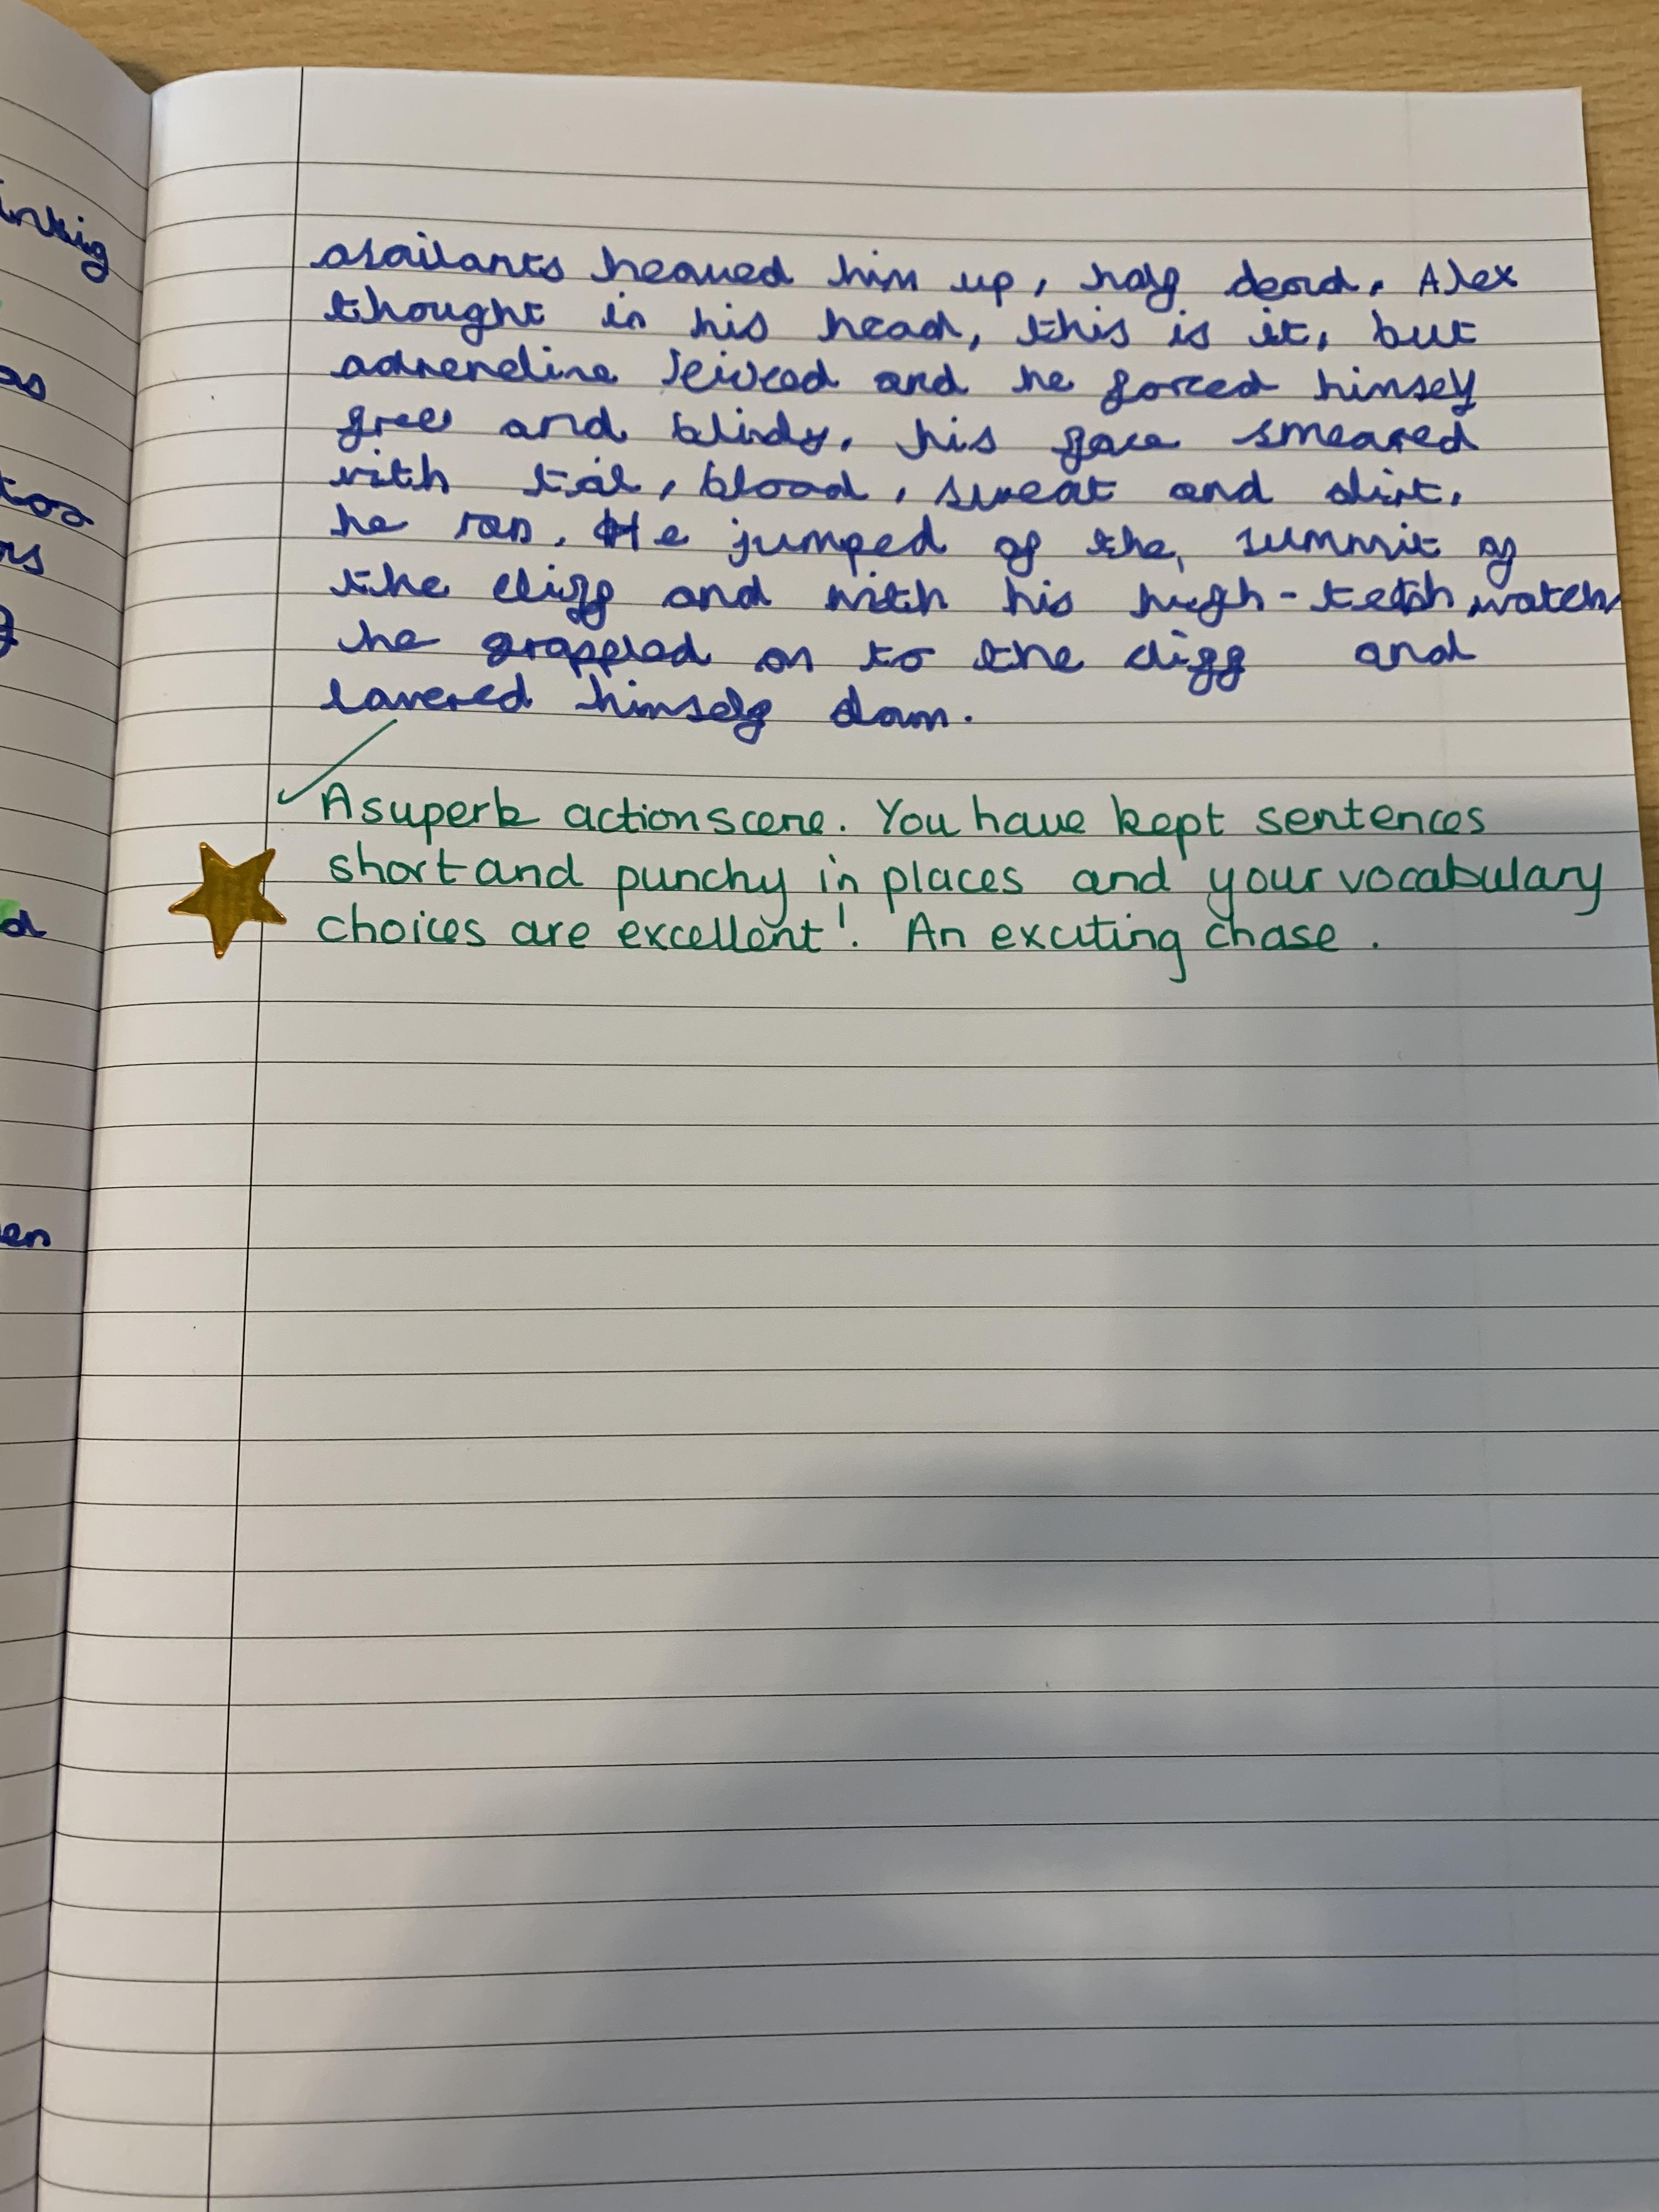 inkig
as
too
rs
g
d
en
asailants heaved him up, half dead. Alex
thought in his head, this is it, but
adreneline and he forced himself
free and blindy, his face smeared
with blood, sweat and dirt,
he ran. He jumped of the, summit of
the cliff and with his high-tetch watch
he grappled on to the cliff and
lavered himself down.
A superb action scene. You have kept sentences
short and punchy in places and your vocabulary
choices are excellent! An exciting chase.